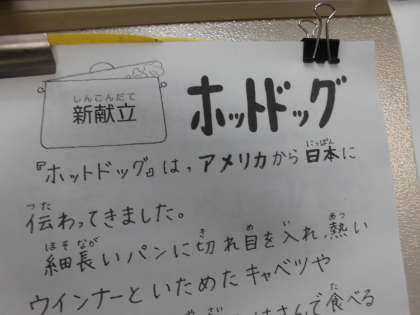 しんこんだて
新献立
ホットドッグ
『ホットドッグ』は、アメリカから日本に
にっぽん
つた
伝わってきました。
ほそなが
き
め
い
あつ
細長いパンに切れ目を入れ、熱い
ウインナーといためたキャベツや
た
はさんで食べる